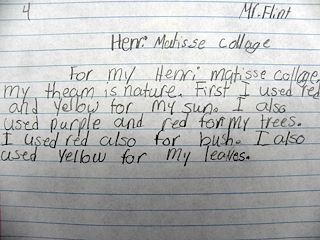 4 Mr. Flint
Henri Matisse collage
For my Henri matisse collage,
my theam is nature. First I used red
and yellow for my sun. I also
used purple and red for my trees.
I used red also for bush. I also
used yellow for my leaves.